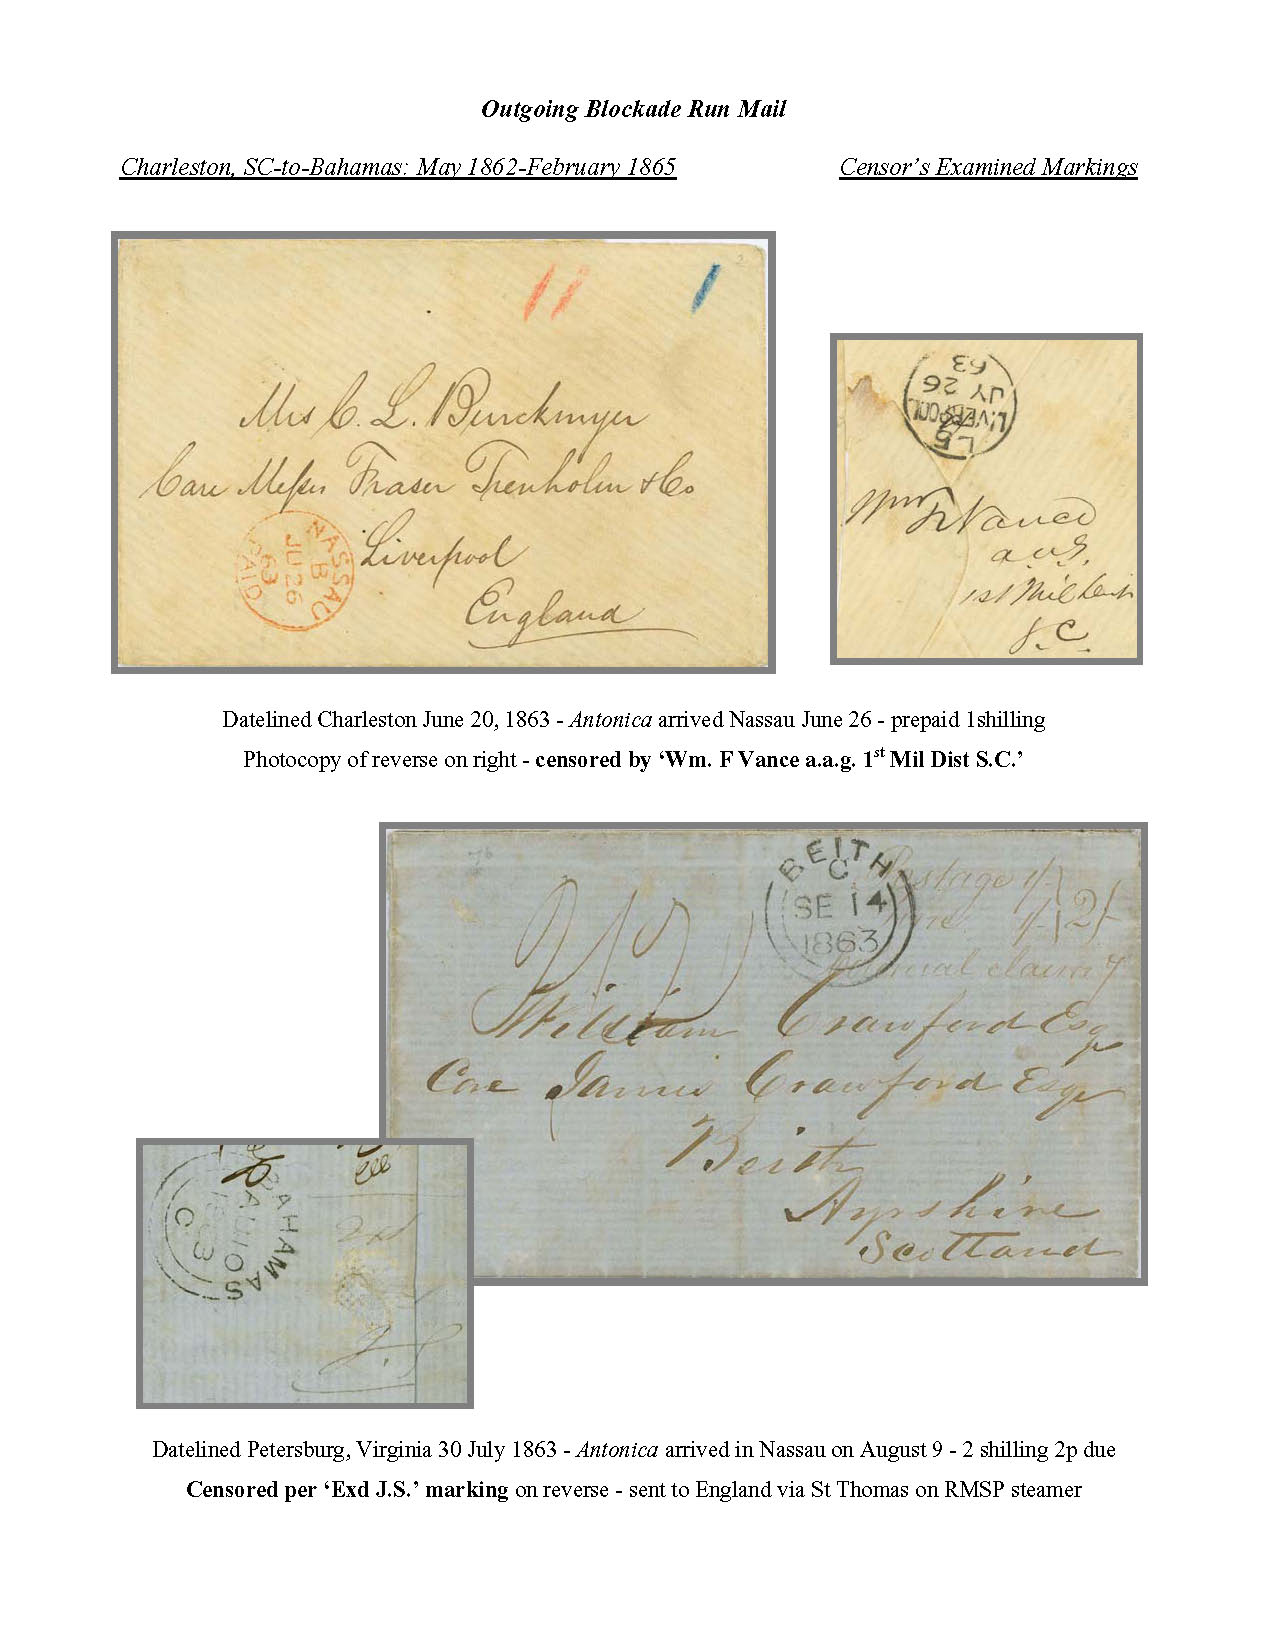 Outgoing Blockade Run Mail
Charleston, SC-to-Bahamas: May 1862-February 1865
Censor's Examined Markings
11
1
Mrs C. L. Burckmyer
Care Messrs Fraser Trenholm & Co
Liverpool
England
NASSAU
B
JU 26
63
PAID
L5
LIVERPOOL
JY 26
63
Wm F Vance
a.a.g.
1st Mil Dist
S.C.
Datelined Charleston June 20, 1863 - Antonica arrived Nassau June 26 - prepaid 1shilling
Photocopy of reverse on right - censored by ‘Wm. F Vance a.a.g. 1st Mil Dist S.C.’
BEITH
C
SE 14
1863
Postage 1/-
Fine 1/-
2/-
claim
William Crawford Esq
Care James Crawford Esqr
Beith
Ayrshire
Scotland
BAHAMAS
C
AU 10
Exd
J.S.
Datelined Petersburg, Virginia 30 July 1863 - Antonica arrived in Nassau on August 9 - 2 shilling 2p due
Censored per ‘Exd J.S.’ marking on reverse - sent to England via St Thomas on RMSP steamer